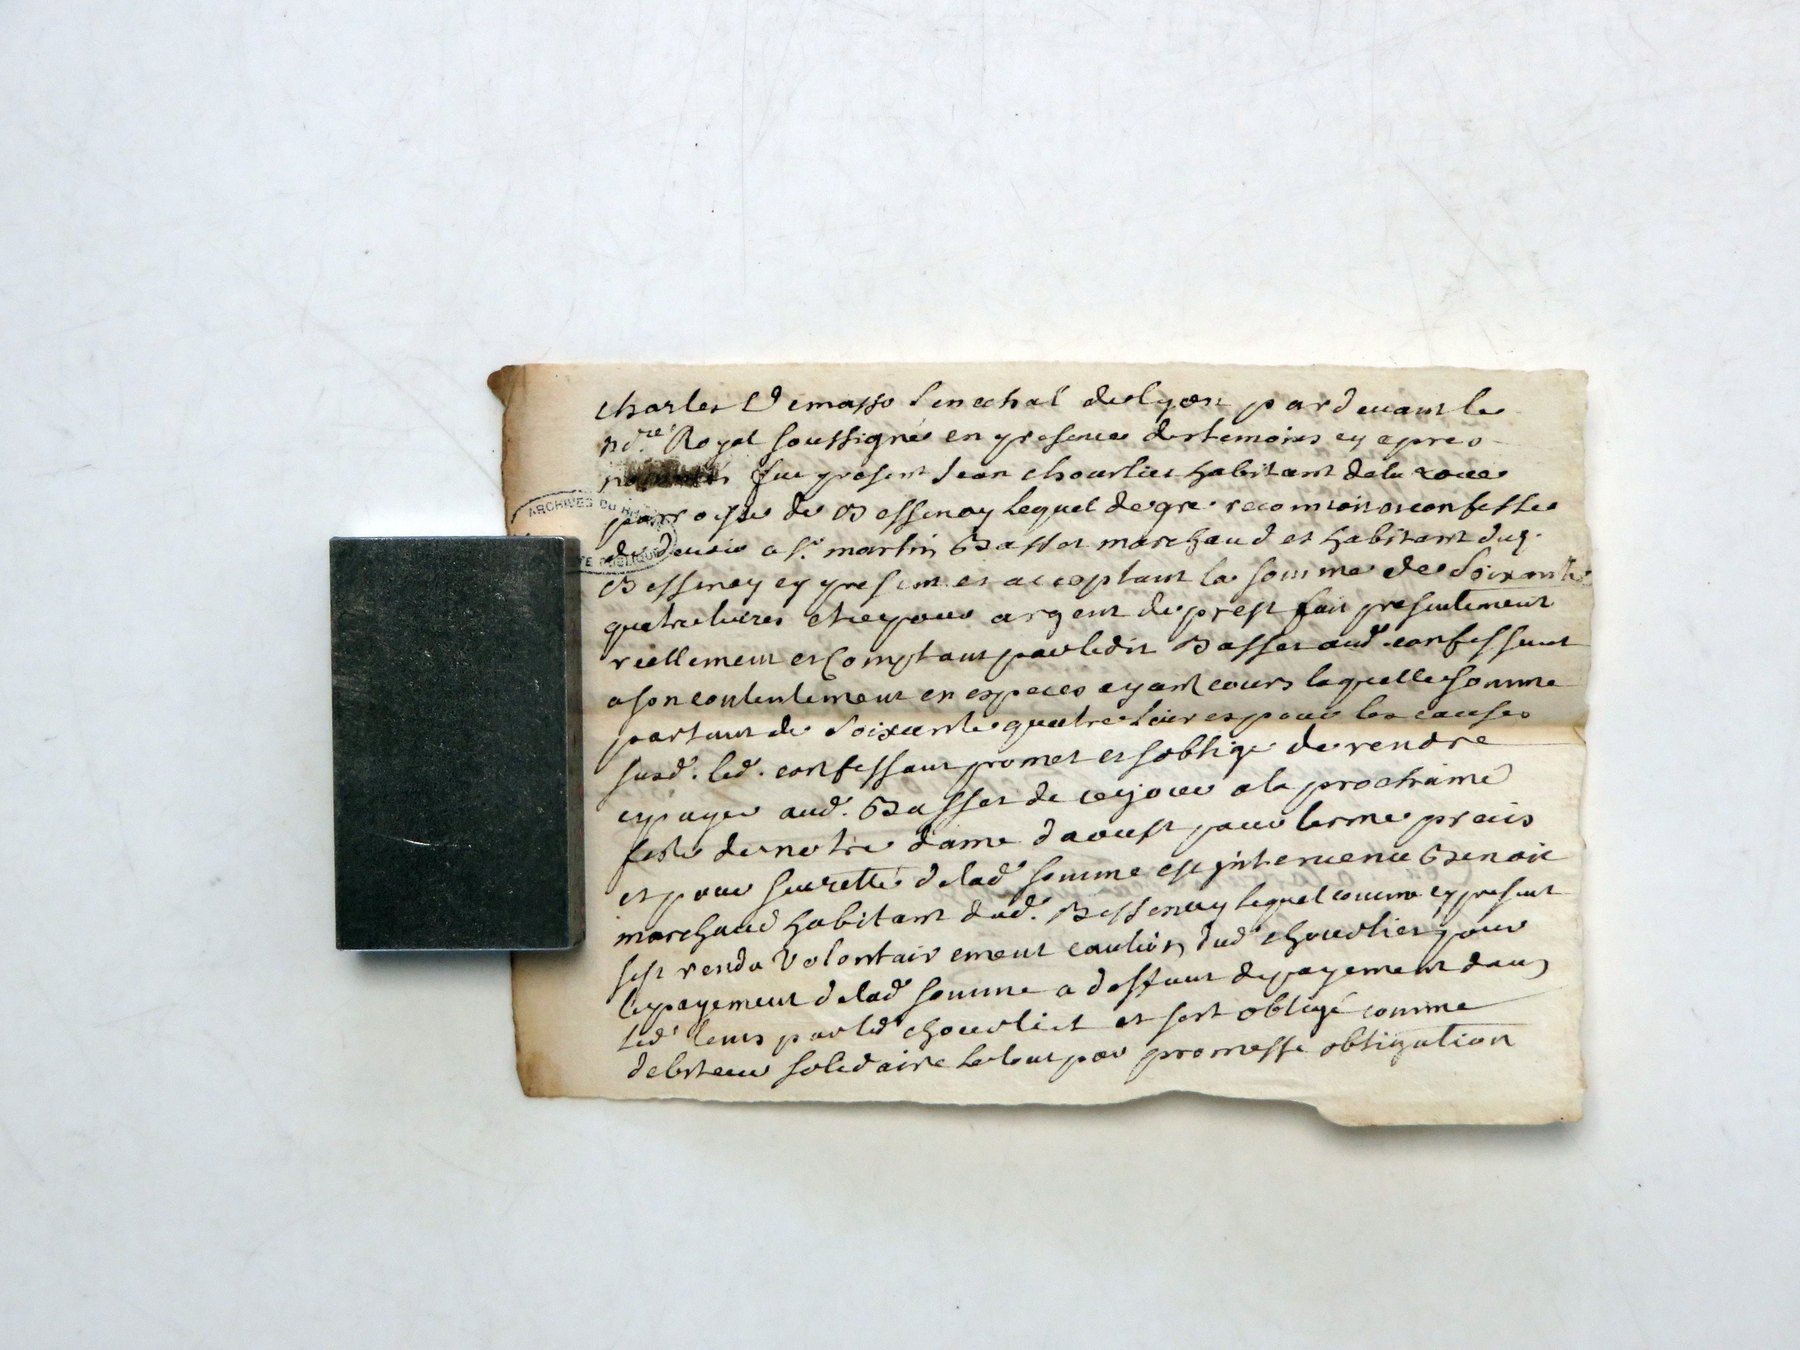 Charles Demasso Senechal de Lyon pardevant le
nore. Royal soussigné en presence des temoins cy apres
fut present Jean Chourlier habitant de la
parroisse de Bessenay lequel de gre reconnoit et confesse
de devoir a sr. martin Basset marchand et habitant dud.
Bessenay cy present et acceptant la somme de Soixante
quatre livres et ce pour argent de prest fait presentement
reellement et Comptant par ledit Basset aud. confessant
a son contentement en especes ayant cours laquelle somme
partant de Soixante quatre livres pour les causes
susd. led. confessant promet et soblige de rendre
et payer aud. Basset de ce jour a la prochaine
feste de notre dame daoust pour terme precis
et pour seureté de lad. somme est intervenu Benoit
marchand habitant dud. Bessenay lequel comme cy present
sest rendu Volontairement caution dud. chourlier pour
le payement de lad. somme a deffaut de payement dans
led. tems par led. chourlier et sest obligé comme
debiteur solidaire le tout par promesse obligation
ARCHIVES DU RHÔNE